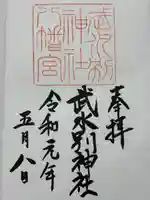 奉拝
武水別神社
八幡宮
武水別
神社
令和元年
五月八日